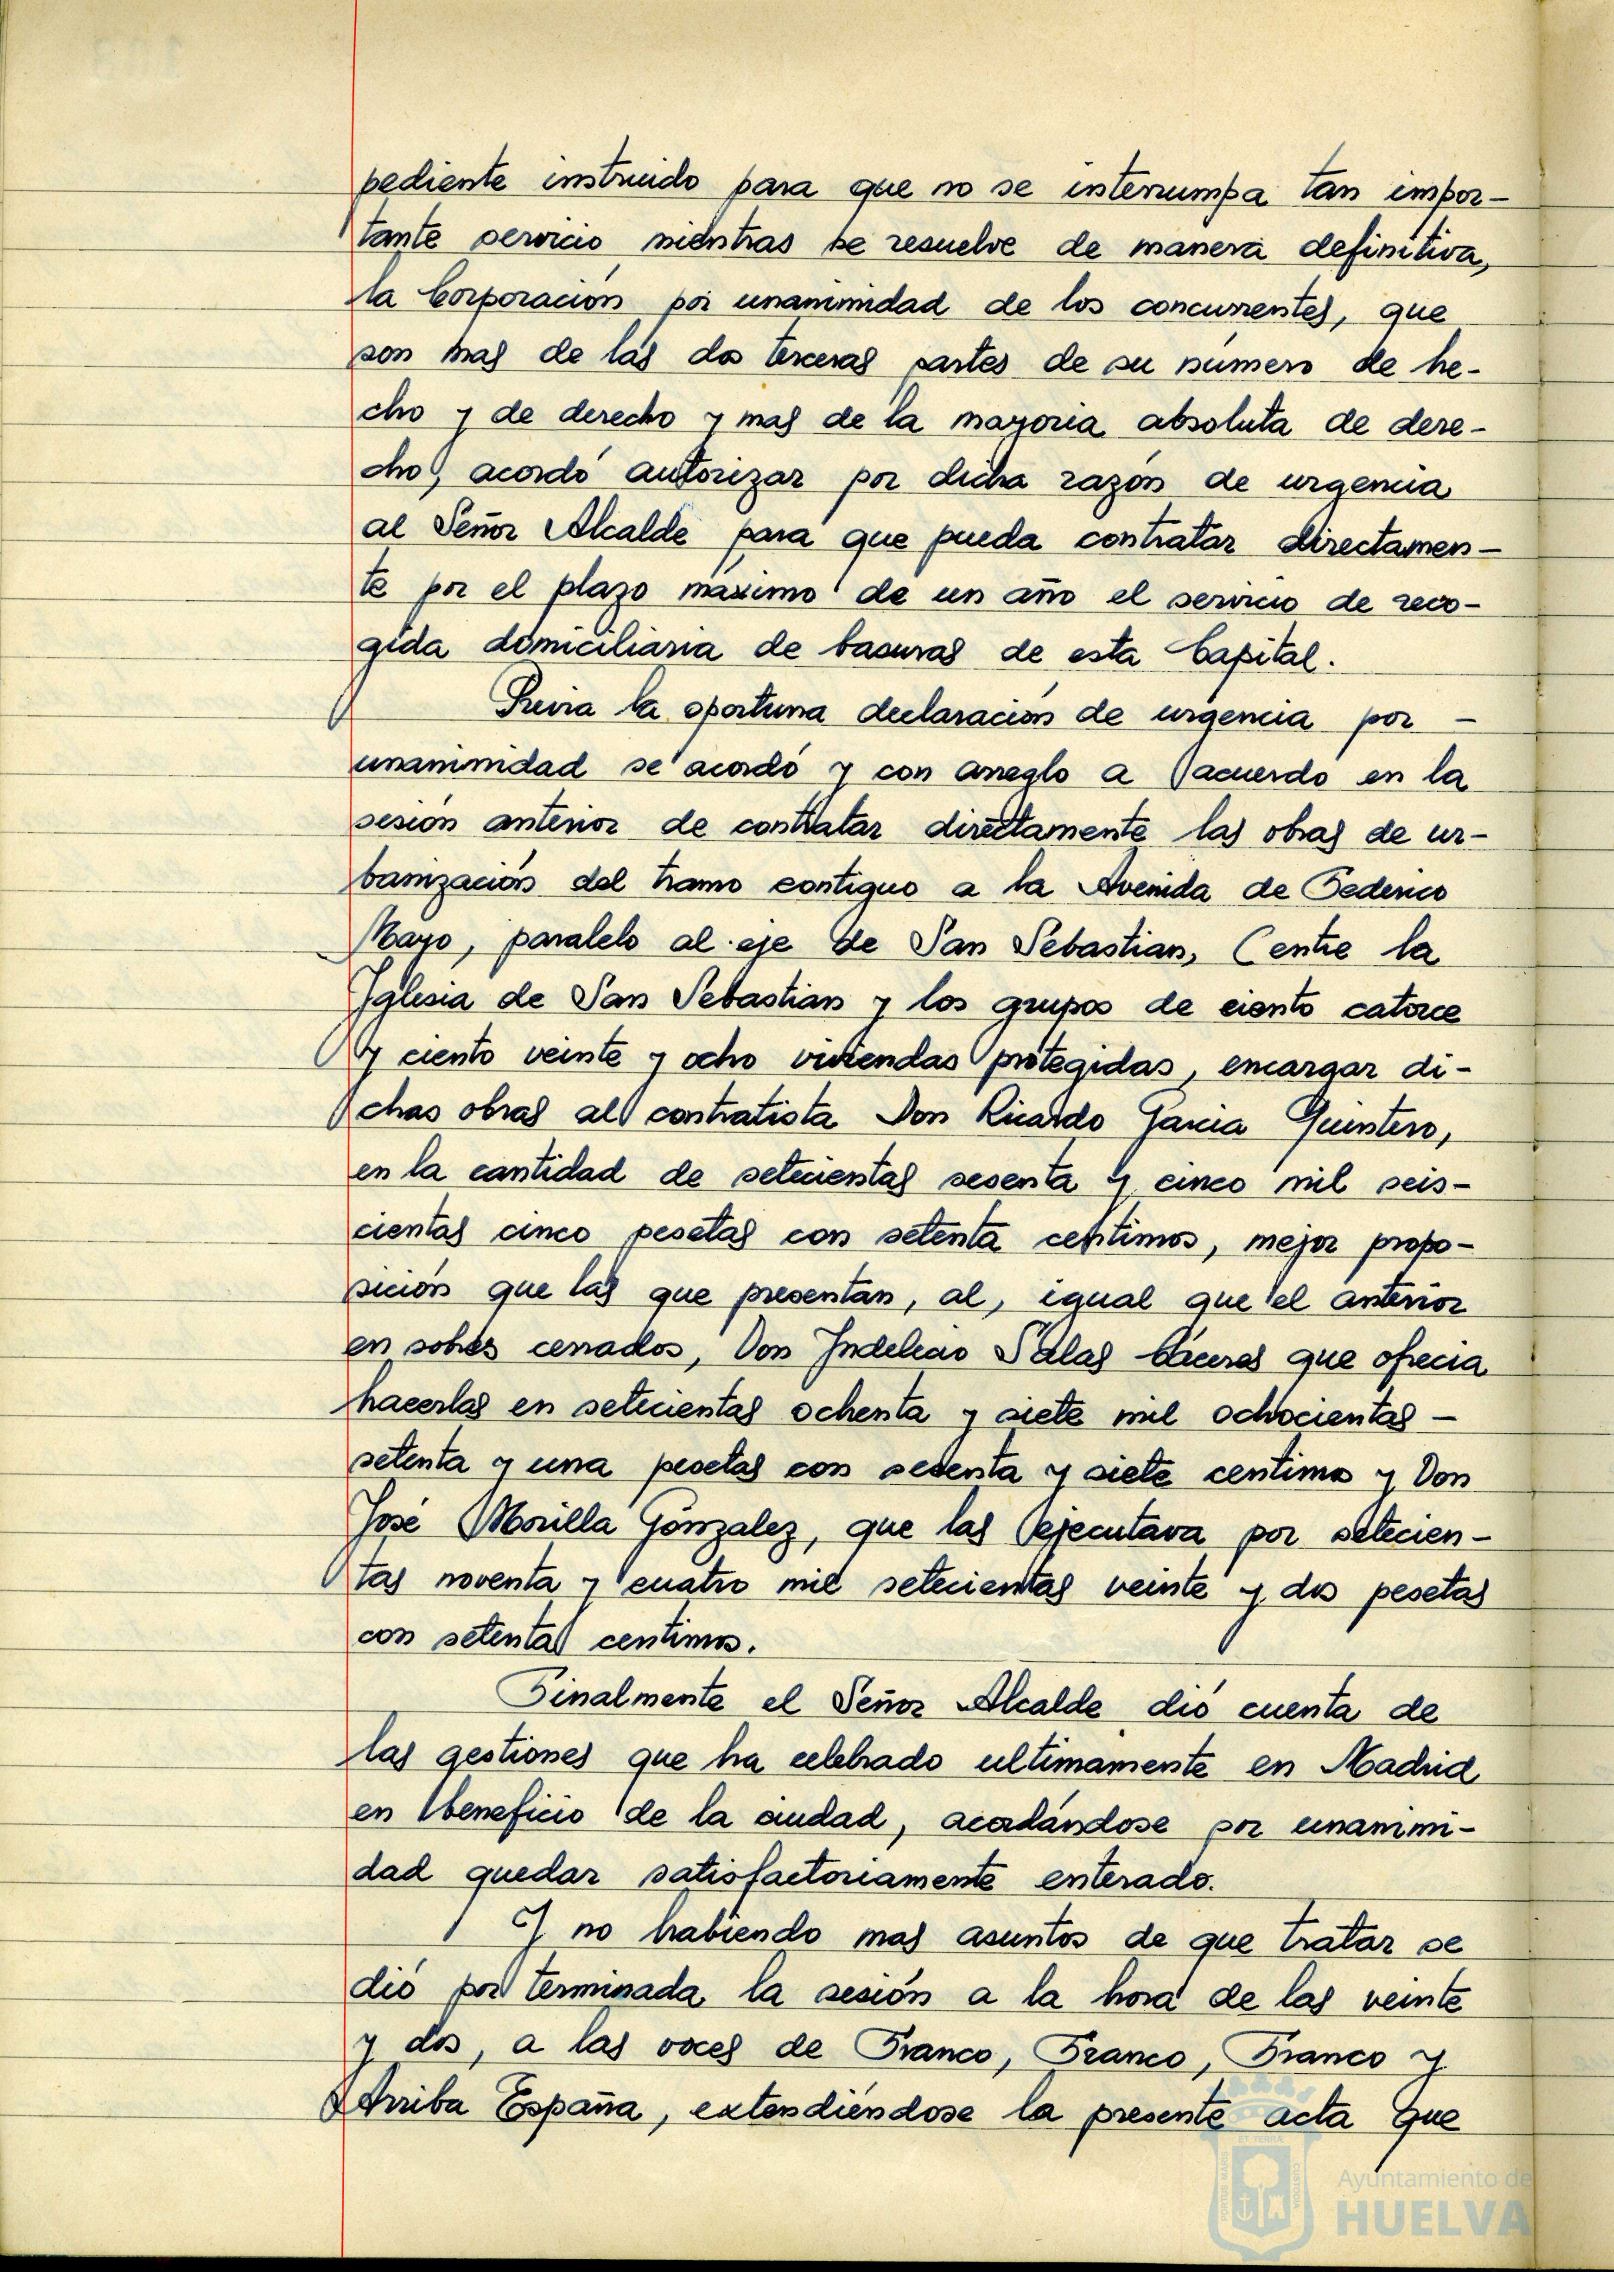 pediente instruido para que no se interrumpa tan impor-
tante servicio mientras se resuelve de manera definitiva,
la Corporación por unanimidad de los concurrentes, que
son mas de las dos terceras partes de su número de he-
cho y de derecho y mas de la mayoria absoluta de dere-
cho, acordó autorizar por dicha razón de urgencia
al Señor Alcalde para que pueda contratar directamen-
te por el plazo máximo de un año el servicio de reco-
gida domiciliaria de basuras de esta Capital.
Previa la oportuna declaración de urgencia por -
unanimidad se acordó y con arreglo a acuerdo en la
sesión anterior de contratar directamente las obras de ur-
banización del tramo contiguo a la Avenida de Federico
Mayo, paralelo al eje de San Sebastian, (entre la
Iglesia de San Sebastian y los grupos de ciento catorce
y ciento veinte y ocho viviendas protegidas, encargar di-
chas obras al contratista Don Ricardo Garcia Quintero,
en la cantidad de setecientas sesenta y cinco mil seis-
cientas cinco pesetas con setenta centimos, mejor propo-
sición que las que presentan, al, igual que el anterior
en sobres cerrados, Don Indelecio Salas Cáceres que ofrecia
hacerlas en setecientas ochenta y siete mil ochocientas -
setenta y una pesetas con sesenta y siete centimos y Don
José Morilla Gónzalez, que las ejecutava por setecien-
tas noventa y cuatro mil setecientas veinte y dos pesetas
con setenta centimos.
Finalmente el Señor Alcalde dió cuenta de
las gestiones que ha celebrado ultimamente en Madrid
en beneficio de la ciudad, acordándose por unanimi-
dad quedar satisfactoriamente enterado.
Y no habiendo mas asuntos de que tratar se
dió por terminada la sesión a la hora de las veinte
y dos, a las voces de Franco, Franco, Franco y
Arriba España, extendiéndose la presente acta que
Ayuntamiento de
HUELVA